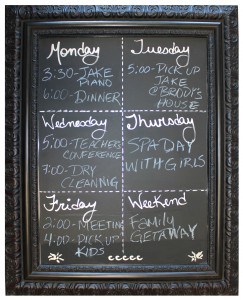 Monday
3:30-JAKE
PIANO
6:00-DINNER
Tuesday
5:00-PICK UP
JAKE
@BRODY'S
HOUSE
Wednesday
5:00-TEACHERS
CONFERENCE
7:00-DRY
CLEANNIG
Thursday
SPA-DAY
WITH GIRLS
Friday
2:00-MEETING
4:00-PICK UP
KIDS
Weekend
FAMILY
GETAWAY